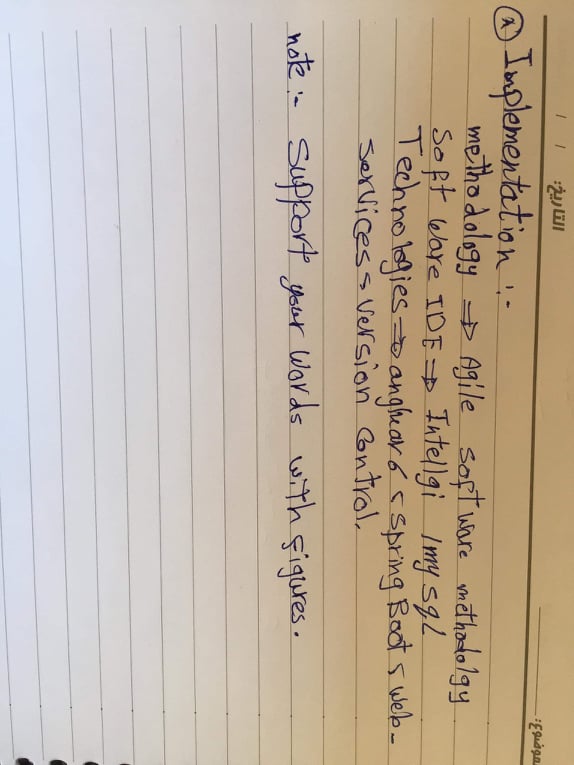 التاريخ: / /
موضوع:
Implementation :-
methodology ⇒ Agile software methodolgy
Soft ware IDE ⇒ Intellgi / my sql
Technologies ⇒ angluar 6 ، spring Boot ، web-
services ، version control.
note :- support your words with figures.